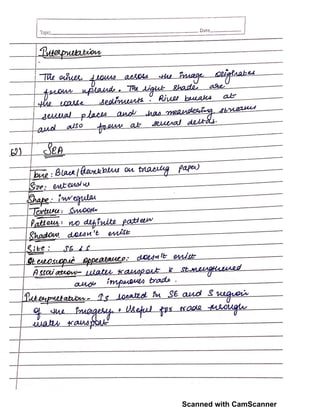 Topic Date
Interpretation
The river flows across the image originates
from upland. The light shades are
the coarse sediments. River breaks at
several places and has meandering streams
and also form at several deltas.
62) SEA
Tone: Black/dark blue on tracing paper)
Size: extensive
Shape: irregular
Texture: Smooth
Pattern: no definite pattern
Shadow doesn't exist
Site: SE & S
Stereoscopic appearance: doesn't exist
Association- water transport is strengthened
and improves trade.
Interpretation- Is located in SE and S region
of the imagery. Useful for trade through
water transport
Scanned with CamScanner